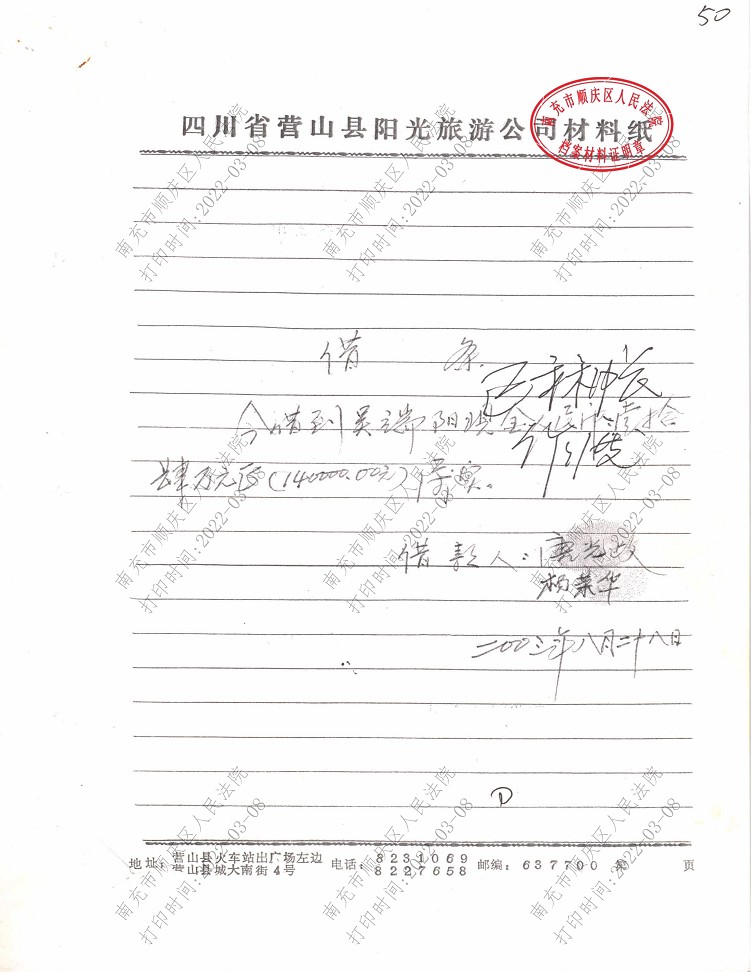 50
四川省营山县阳光旅游公司材料纸
南充市顺庆区人民法院
档案材料证明章
借 条
今借到吴 阳现金 壹拾
肆万元正(140000.00元)属实。
借款人:唐光政
杨荣华
二00三年八月二十八日
D
地址: 营山县火车站出广场左边 电话: 8231069 邮编: 637700 第 页
营山县城大南街4号 8227658
南充市顺庆区人民法院
打印时间:2022-03-08
南充市顺庆区人民法院
打印时间:2022-03-08
南充市顺庆区人民法院
打印时间:2022-03-08
南充市顺庆区人民法院
打印时间:2022-03-08
南充市顺庆区人民法院
打印时间:2022-03-08
南充市顺庆区人民法院
打印时间:2022-03-08
南充市顺庆区人民法院
打印时间:2022-03-08
南充市顺庆区人民法院
打印时间:2022-03-08
南充市顺庆区人民法院
打印时间:2022-03-08